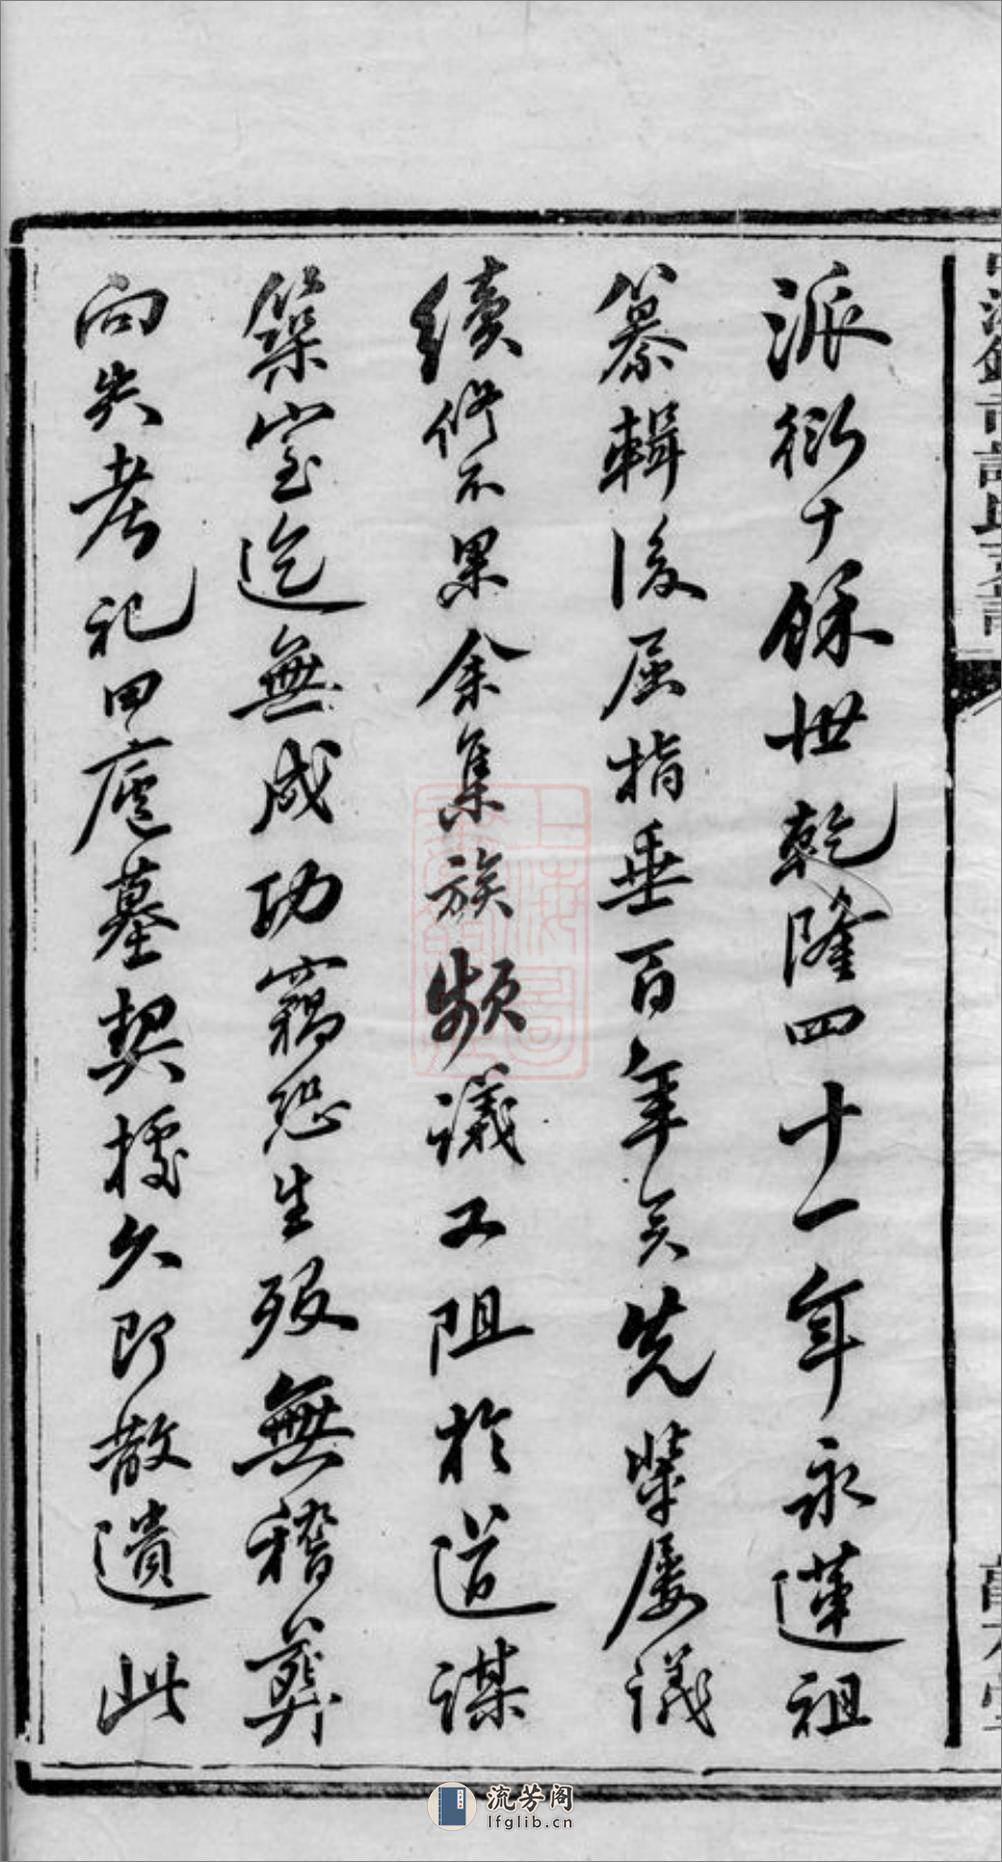 派衍十餘世乾隆四十一年永蓮祖
纂輯後屈指垂百年矣先輩屢議
續修不果余集族頻議又阻於道謀
築室迄無成功竊恐生殁無稽葬
向失考祀田廬墓契據久即散遺此
流芳阁
lfglib.cn